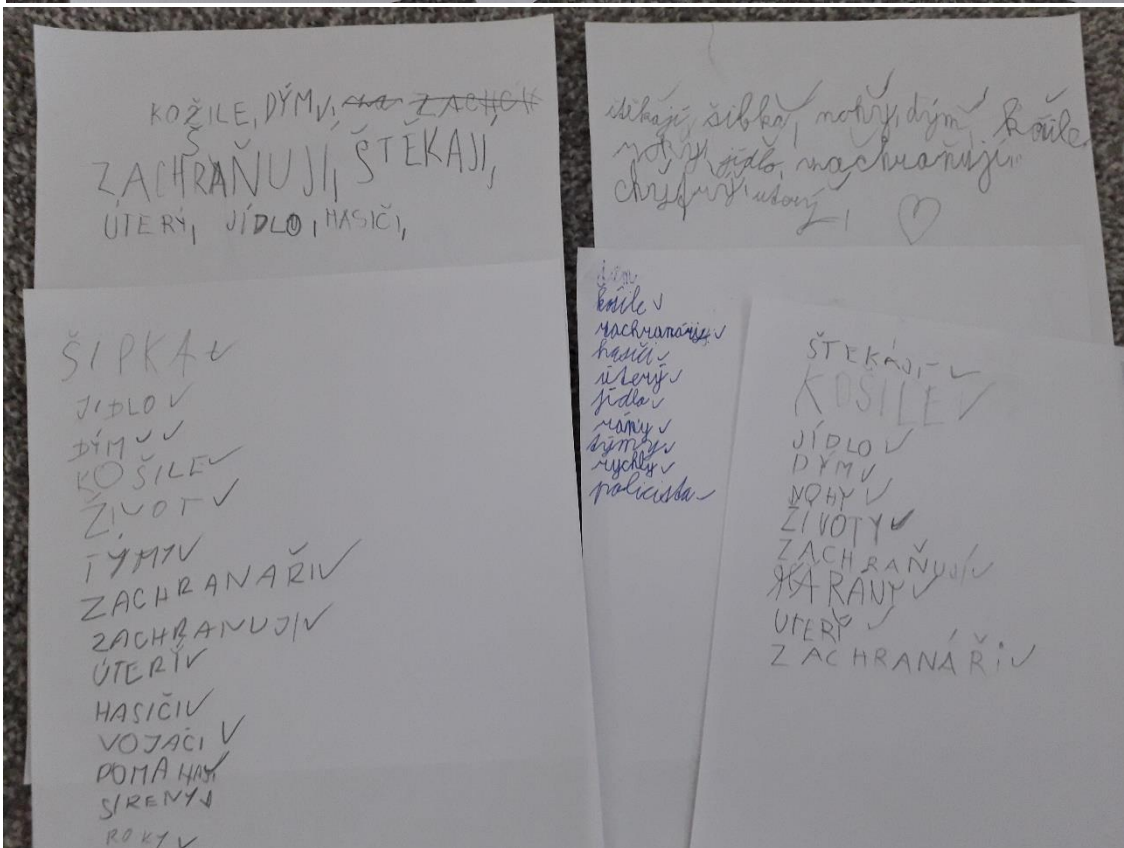 KOŽILE, DÝM,
Š
ZACHRAŇUJÍ, ŠTĚKAJÍ,
ÚTERÝ, JÍDLO, HASIČI,
štíkají, šibka, nohy, dým, košile
jídlo, zachraňují
úterý,
ŠIPKA
JÍDLO
DÝM
KOŠILE
ŽIVOT
TÝMY
ZACHRANAŘI
ZACHRANUJI
ÚTERÝ
HASIČI
VOJAČI
POMAHAJI
SIRENY
ROKY
košile
hasiči
úterý
jídlo
rány
týmy
rychlý
policista
ŠTEKAJI
KOŠILE
JÍDLO
DÝM
NOHY
ŽIVOTY
ZACHRAŇUJI
RÁNY
UTERÝ
ZACHRANÁŘI